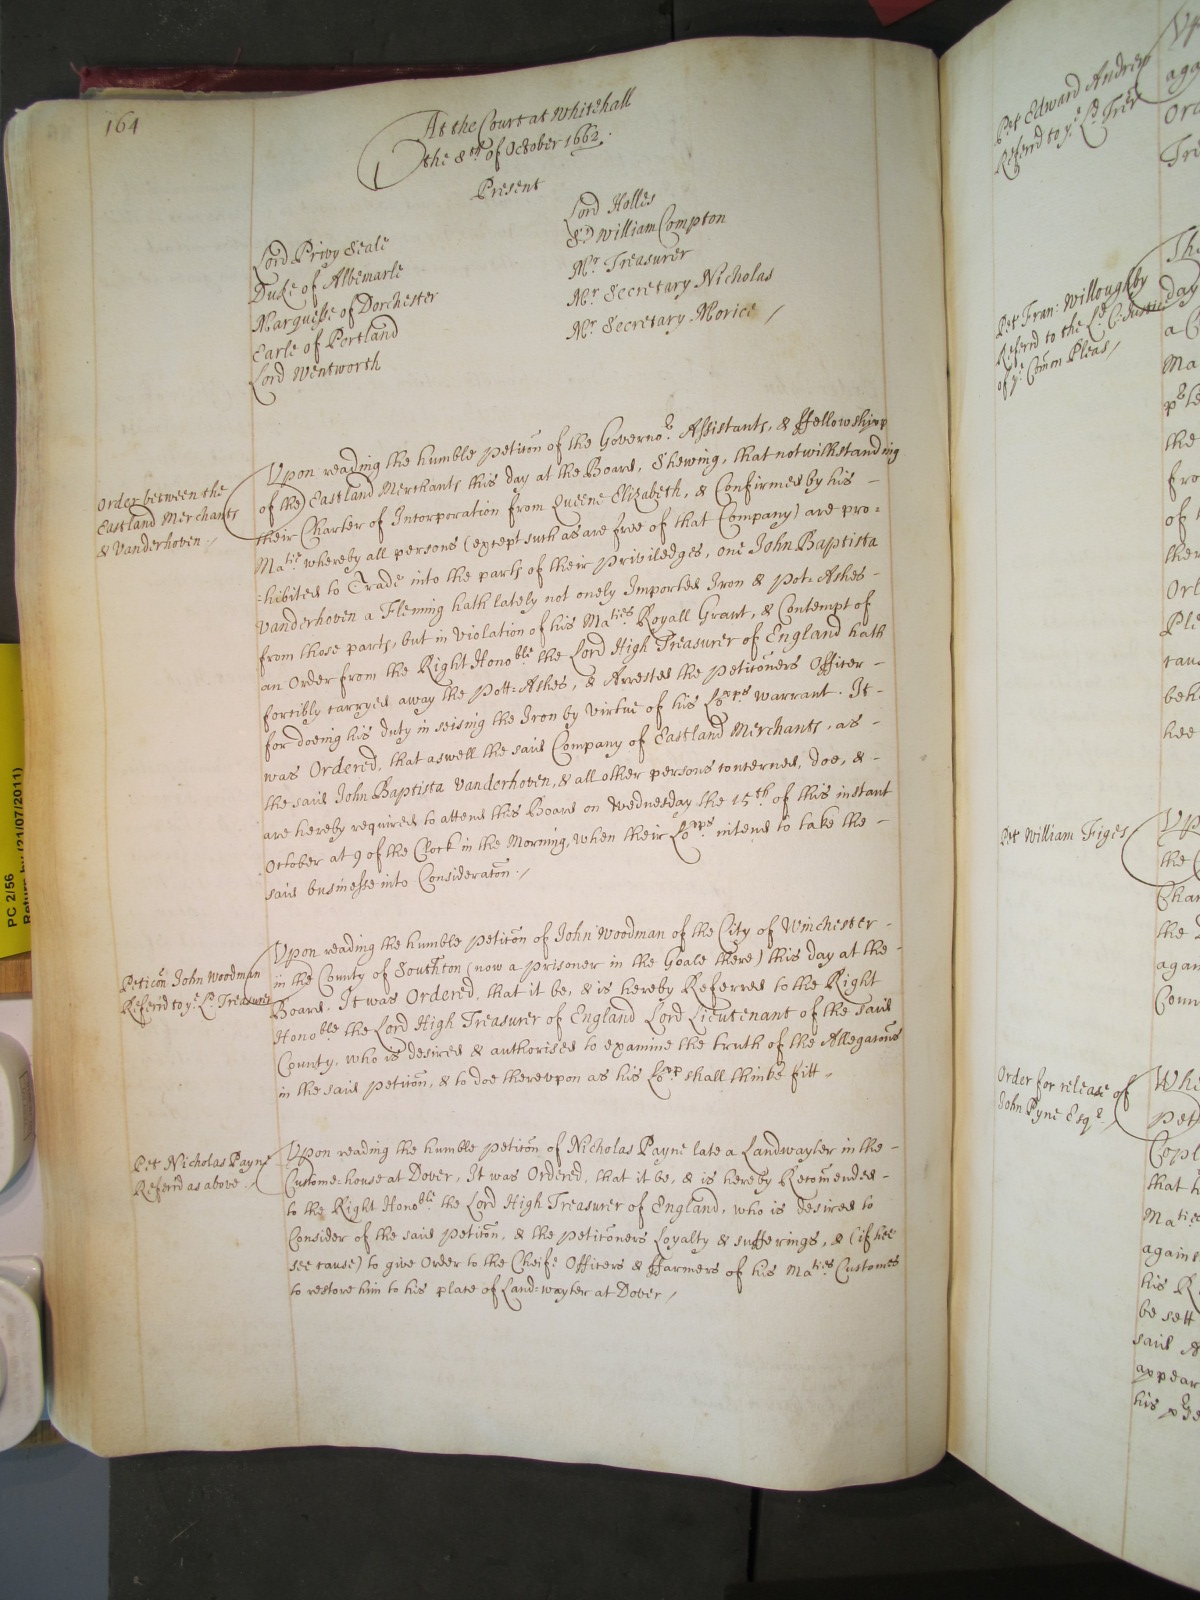 164
At the Court at Whitehall
the 8th of October 1662.
Present
Lord Privy Seale
Duke of Albemarle
Marquesse of Dorchester
Earle of Portland
Lord Wentworth
Lord Holles
Sr William Compton
Mr Treasurer
Mr Secretary Nicholas
Mr Secretary Morice /
Order between the
Eastland Merchants
& Vanderhoven ./
Upon reading the humble Peticõn of the Governor, Assistants, & ffellowshipp
of the Eastland Merchants this day at the Board, Shewing, that notwithstanding
their Charter of Incorporation from Queene Elizabeth, & Confirmed by his -
Matie whereby all persons (except such as are free of that Company) are pro=
=hibited to Trade into the parts of their Priviledges, one John Baptista
Vanderhoven a Fleming hath lately not onely Imported Iron & Pot=Ashes -
from those parts, but in violation of his Maties Royall Grant, & Contempt of
an Order from the Right Honoble the Lord High Treasurer of England hath
forcibly carryed away the Pott=Ashes, & Arrested the Peticõners Officer -
for doeing his duty in seising the Iron by virtue of his Lopps Warrant. It -
was Ordered, that aswell the said Company of Eastland Merchants, as -
the said John Baptista Vanderhoven, & all other persons concerned, doe, & -
are hereby required to attend this Board on Wednesday the 15th of this instant
October at 9 of the Clock in the Morning, when their Lopps intend to take the -
said businesse into Consideratõn ./
Peticõn John Woodman
Referrd to ye Ld Treasurer
Upon reading the humble Peticõn of John Woodman of the City of Winchester -
in the County of Southton (now a Prisoner in the Goale there) this day at the -
Board, It was Ordered, that it be, & is hereby Referred to the Right
Honoble the Lord High Treasurer of England Lord Lieutenant of the said
County, who is desired & authorised to examine the truth of the Allegatõns
in the said Peticõn, & to doe therevpon as his Lopp shall thinke fitt -
Pet Nicholas Payne
Referrd as above /
Upon reading the humble Peticõn of Nicholas Payne late a Landwayter in the -
Custome=house at Dover, It was Ordered, that it be, & is hereby Recom̃ended -
to the Right Honoble the Lord High Treasurer of England, who is desired to
Consider of the said Peticõn, & the Peticõners Loyalty & sufferings, & (if hee
see cause) to give Order to the Cheife Officers & ffarmers of his Maties Customes
to restore him to his place of Land=wayter at Dover /
Pet Edward Andrew
Referrd to ye Ld Trer
Pet Fran: Willoughby
Referrd to the Ld C: Justice
of ye Com̃on Pleas /
Pet William Figes
Order for release of
John Pyne Esqr /
PC 2/56
Return by (21/07/2011)